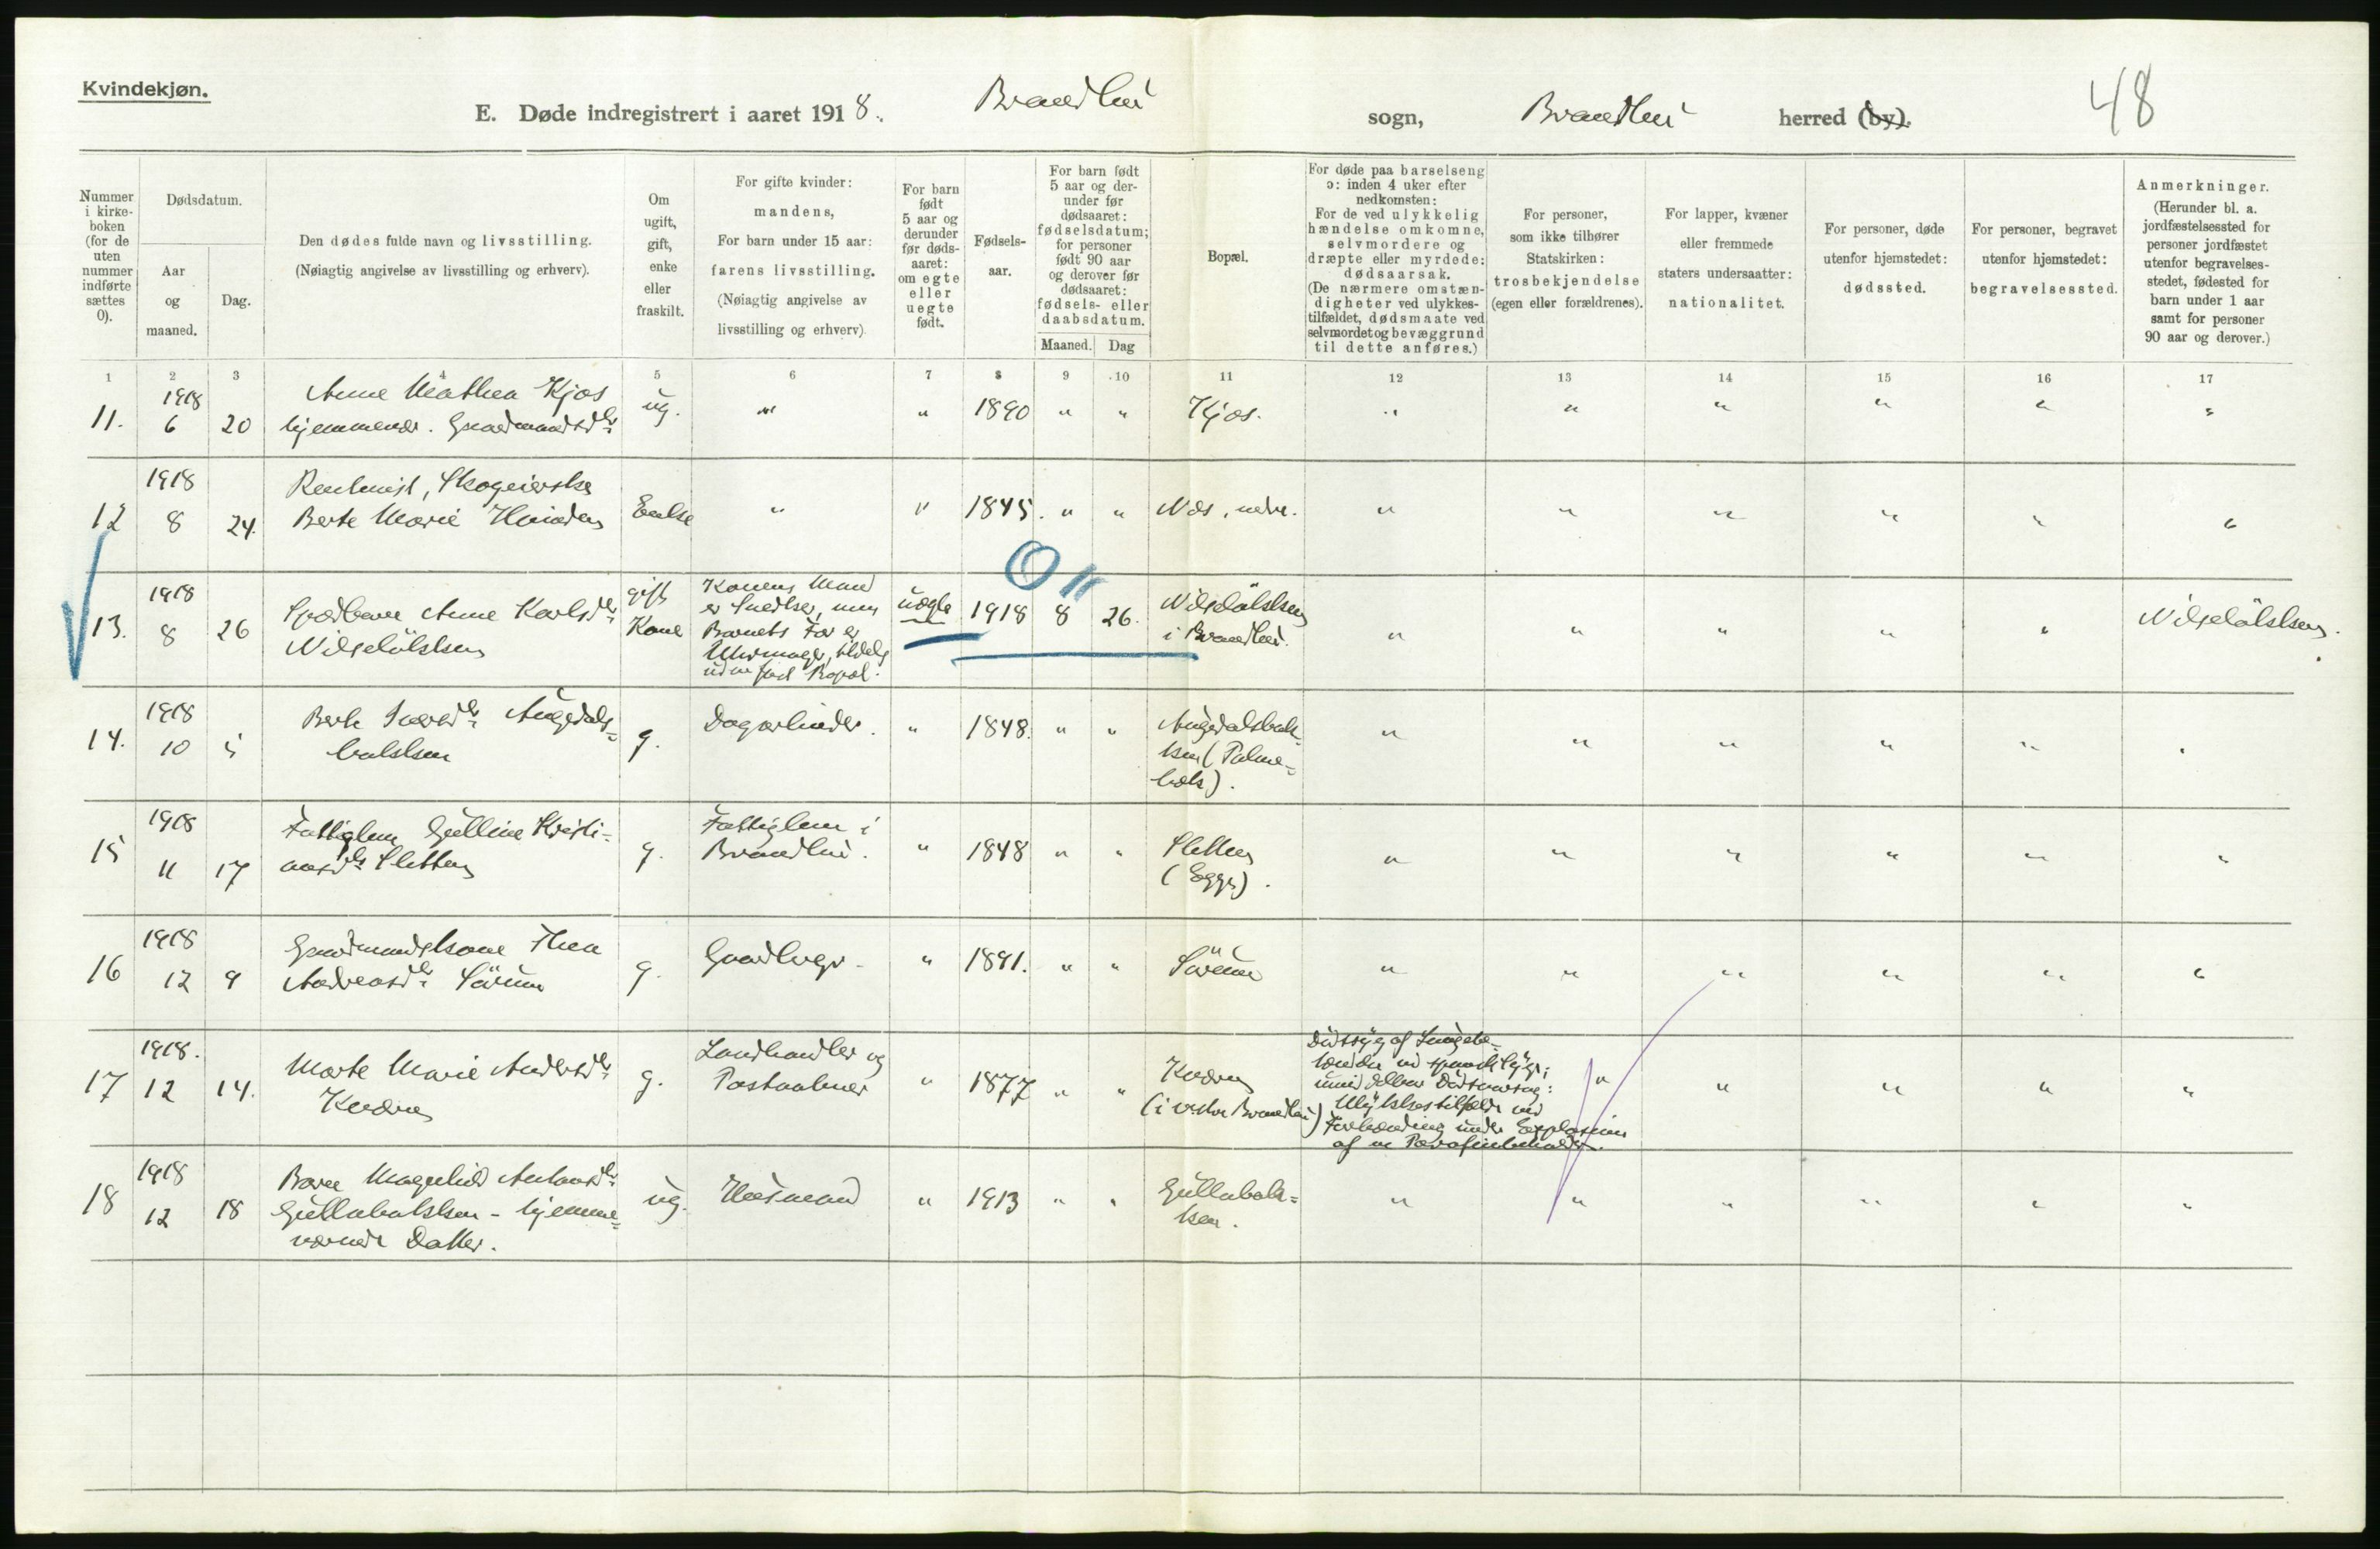 Kvindekjøn.
E. Døde indregistrert i aaret 1918. Brandbu sogn, Brandbu herred (by). 48
Nummer i kirkeboken (for de uten nummer indførte sættes 0).
Dødsdatum.
Aar og maaned.
Dag.
Den dødes fulde navn og livsstilling.
(Nøiagtig angivelse av livsstilling og erhverv).
Om ugift, gift, enke eller fraskilt.
For gifte kvinder: mandens, For barn under 15 aar: farens livsstilling. (Nøiagtig angivelse av livsstilling og erhverv)
For barn født 5 aar og derunder før dødsaaret: om egte eller uegte født.
Fødselsaar.
For barn født 5 aar og derunder før dødsaaret: fødselsdatum; for personer født 90 aar og derover før dødsaaret: fødsels- eller daabsdatum.
Maaned. Dag
Bopæl.
For døde paa barselseng ɔ: inden 4 uker efter nedkomsten: For de ved ulykkelig hændelse omkomne, selvmordere og dræpte eller myrdede: dødsaarsak. (De nærmere omstændigheter ved ulykkestilfældet, dødsmaate ved selvmordet og bevæggrund til dette anføres.)
For personer, som ikke tilhører Statskirken: trosbekjendelse (egen eller forældrenes).
For lapper, kvæner eller fremmede staters undersaatter: nationalitet.
For personer, døde utenfor hjemstedet: dødssted.
For personer, begravet utenfor hjemstedet: begravelsessted.
Anmerkninger. (Herunder bl. a. jordfæstelsessted for personer jordfæstet utenfor begravelsesstedet, fødested for barn under 1 aar samt for personer 90 aar og derover.)
1 2 3 4 5 6 7 8 9 10 11 12 13 14 15 16 17
1918 Anne Mathea Kjos ug.
11. 6 20 hjemmevær. Gaardmandsdtr " " 1890 " " Kjos. " " " " " "
1918 Rentenist, Skogeierske
12 8 24. Berte Marie Enke " " 1845. " " Næs, nedre. " " " " " "
O
1918 gift Konens Mand
13. 8 26 Spædbarn Anne Karlsdtr Kone er Snedker, men uægte 1918 8 26. " " " " "
Barnets Far er i Brandbu.
Uhrmager,
uden fast Bopæl.
1918 Berte Iversdtr Augedals=
14. 10 5 bakken g. Dagarbeider. " 1848. " " Augedalsbak= " " " " " "
ken (Palme=
bæk).
1918 Fattiglem Gulline Kristi= Fattiglem i
15 11 17 ansdtr Sletten g. Brandbu. " 1848 " " Sletten " " " " " "
(Egge).
1918 Gaardmandskone Thea
16 12 9 Andreasdtr Sörum g. Gaardbrger. " 1891. " " Sörum " " " " " "
1918. Landhandler og
17 12 14. Marte Marie Andersdtr g. Postaabner " 1877 " " Kværn " " " " "
Kværn (i vestre Brandbu)
Dødssyg af Lungebe=
tændelse ved spansk Syge;
umiddelbar Dødsaarsag:
Ulykkestilfælde ved
Forbrænding under Explosion
af en Parafinbeholder.
1918 Barn Magnhild Antonsdtr
18 12 18 Gullabakken - hjemme= ug. Husmand " 1913 " " Gullabak= " " " " " "
værende Datter. ken.